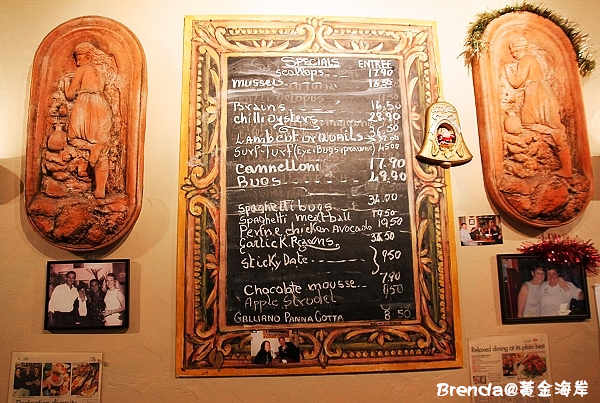 SPECIALS ENTREE
Scallops 17.90
mussels 18.50
Brains 16.50
chilli oysters 28.90
Lamb cut or Quails 36.50
Surf-Turf (Eye. Bugs. prawns) 45.00
Cannelloni 17.90
BUGS 49.90
Spaghetti bugs 36.00
Spaghetti meatball 19.50
Penne chicken Avocado 19.50
Garlic K. Prawns 36.50
Sticky Date 9.50
Chocolate mousse 7.90
Apple Strudel 8.50
GALLIANO PANNA COTTA 8.50
Relaxed dining at its plain best
Brenda@黃金海岸